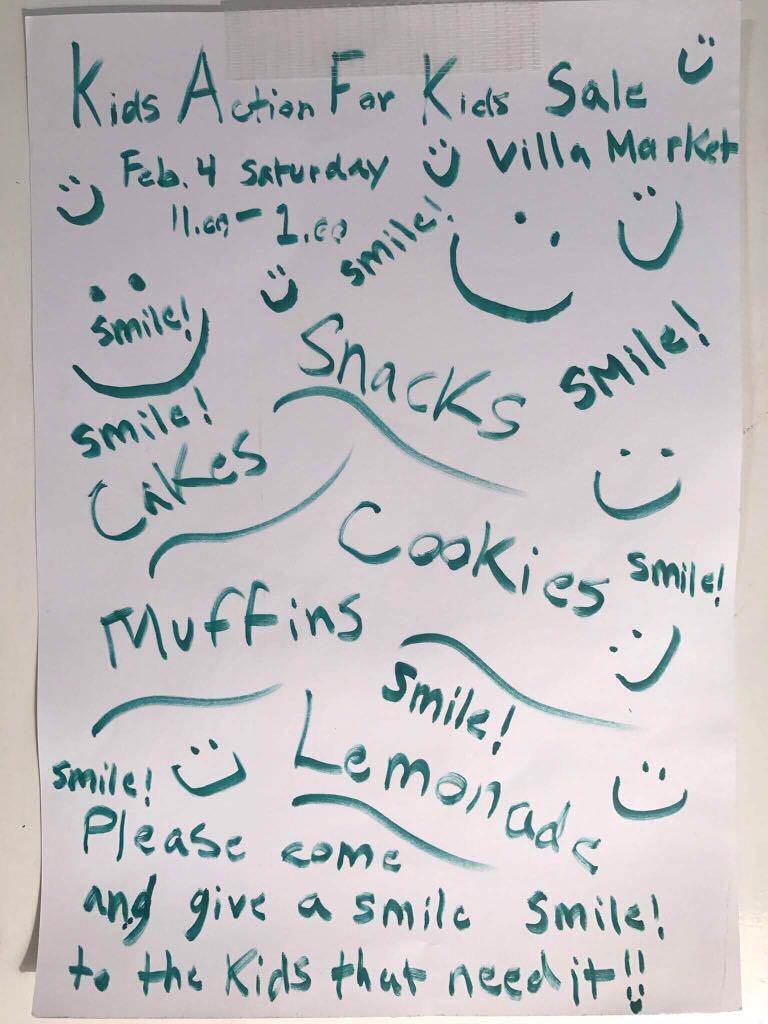 Kids Action For Kids Sale
Feb. 4 Saturday
Villa Market
11.00 - 1.00
smile!
smile!
Snacks
SMILE!
smile!
Cakes
Cookies
smile!
Muffins
smile!
Lemonade
smile!
Please come
and give a smile smile!
to the Kids that need it!!